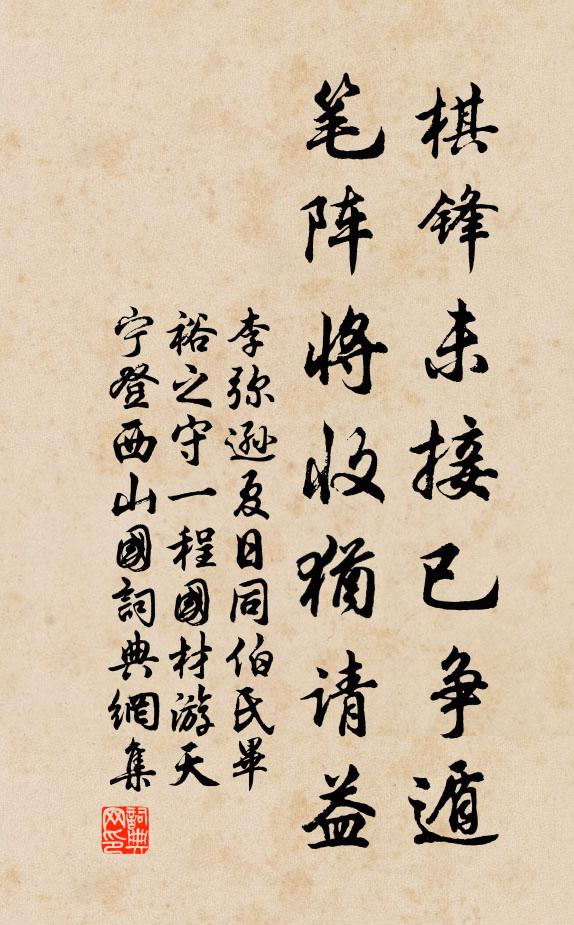 棋锋未接已争遁
笔阵将收犹请益
李弥逊夏日同伯民畢
裕之守一程國材游天
宁登西山國詞典網集
詞典网印